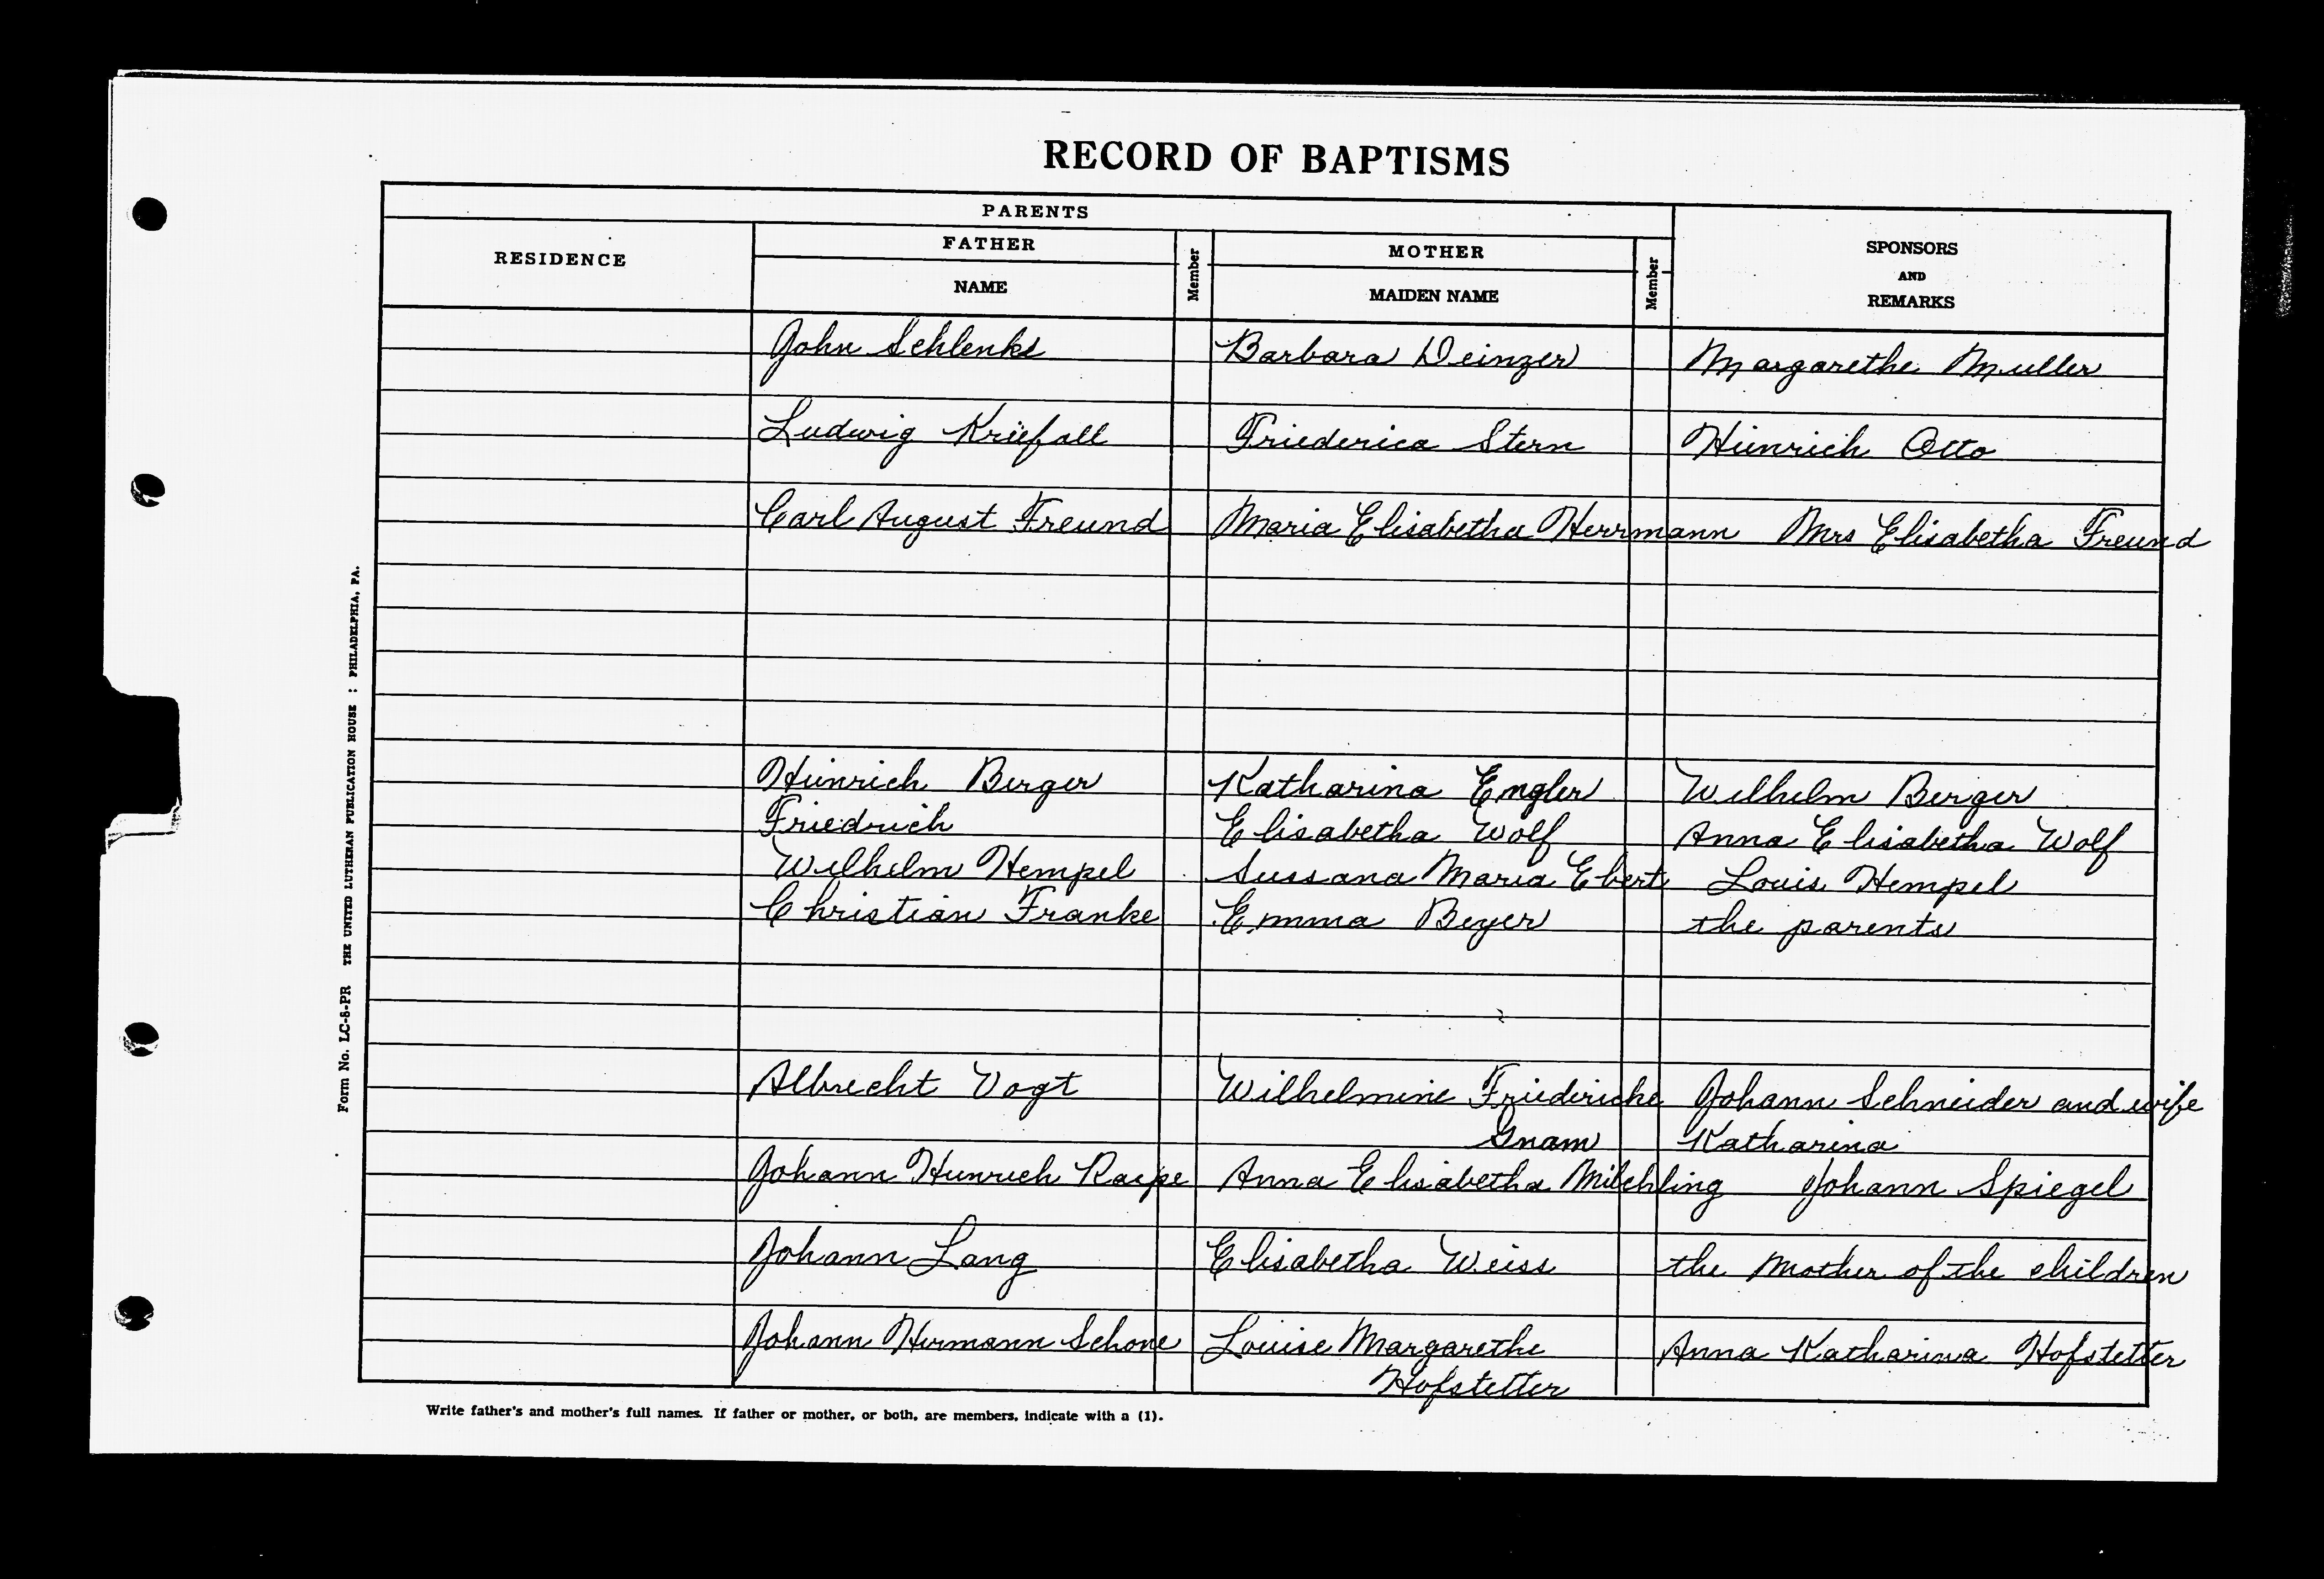 RECORD OF BAPTISMS
PARENTS
RESIDENCE FATHER Member MOTHER Member SPONSORS
AND
NAME MAIDEN NAME REMARKS
John Schlenks Barbara Deinzer Margarethe Muller
Ludwig Kriefall Friederica Stern Heinrich Otto
Carl August Freund Maria Elisabetha Herrmann Mrs Elisabetha Freund
Heinrich Berger Katharina Engler Wilhelm Berger
Friedrich Elisabetha Wolf Anna Elisabetha Wolf
Wilhelm Hempel Sussana Maria Ebert Louis Hempel
Christian Franke Emma Beyer the parents
Albrecht Vogt Wilhelmine Friedericke Johann Schneider and wife
Gnam Katharina
Johann Heinrich Raipe Anna Elisabetha Milchling Johann Spiegel
Johann Lang Elisabetha Weiss the Mother of the children
Johann Hermann Schone Louise Margarethe Anna Katharina Hofstetter
Hofstetter
Write father's and mother's full names. If father or mother, or both, are members, indicate with a (1).
Form No. LC-8-PR THE UNITED LUTHERAN PUBLICATION HOUSE : PHILADELPHIA, PA.